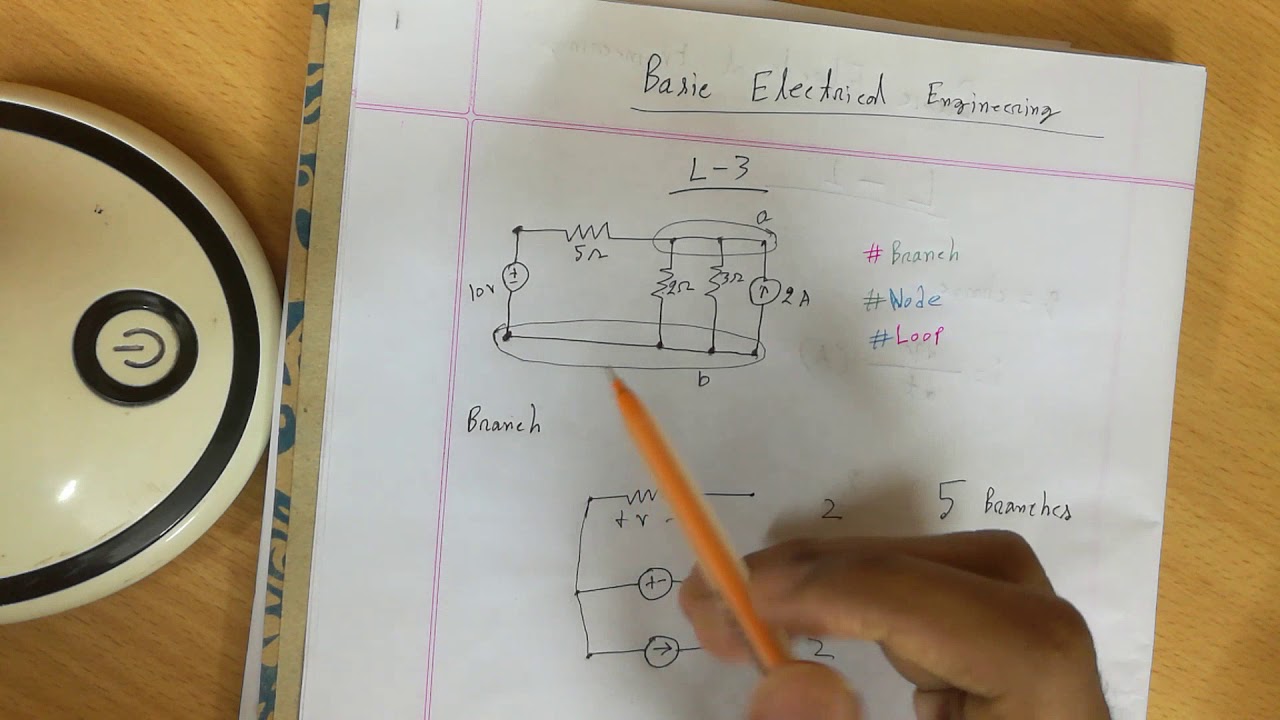 Basic Electrical Engineering
L-3
a
5Ω
10v
2Ω
3Ω
2A
b
# Branch
# Node
# Loop
Branch
+ v -
2
5 Branches
2